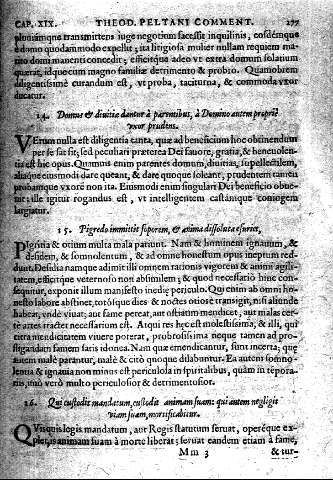 CAP. XIX. THEOD. PELTANI COMMENT. 277
plumámque transmittens iuge negotium facessit inquilinis, eosdémque
è domo quodammodo expellit; ita litigiosa mulier nullam requiem ma-
rito domi manenti concedit; efficitque adeo vt extra domum solatium
quærat, idque cum magno familiæ detrimento & probro. Quamobrem
diligentissimè curandum est, vt proba, taciturna, & commoda vxor
ducatur.
14. Domus & diuitiæ dantur à parentibus, à Domino autem propriè
vxor prudens.
VErum nulla est diligentia tanta, quæ ad beneficium hoc obtinendum
per se sat sit; sed peculiari præterea Dei fauore, gratia, & beneuolen-
tia est hîc opus. Quamuis enim parentes domum, diuitias, supellectilem,
aliaque eiusmodi dare queant, & dare quoque soleant; prudentem tamen
probamque vxorē non ita. Eiusmodi enim singulari Dei beneficio obue-
nit: ille igitur rogandus est, vt intelligentem castámque coniugem
largiatur.
15. Pigredo immittit soporem, & anima dissoluta esuriet.
PIgritia & otium multa mala pariunt. Nam & hominem ignauum, &
desidem, & somnolentum, & ad omne honestum opus ineptum red-
dunt. Desidia namque adimit illi omnem rationis vigorem & animi agili-
tatem, efficitque veternoso non absimilem; & quod necessariò hinc con-
sequitur, exponit illum manifesto inediæ periculo. Qui enim ab omni ho-
nesto labore abstinet, totósque dies & noctes otiose transigit, nisi aliunde
habeat, vnde viuat; aut fame pereat, aut ostiatim mendicet, aut malas cer-
tè artes tractet necessarium est. Atqui res hęc est molestissima, & illi, qui
citra mendicitatem viuere poterat, probrosissima neque tamen ad pro-
fligandam famem satis idonea. Nam quæ emendicantur, sunt incerta; quę
autem malè parantur, malè & citò quoque dilabuntur. Ea autem somno-
lentia & ignauia non minus est periculosa in spiritalibus, quàm in tēpora-
riis, imò verò multo periculosior & detrimentosior.
16. Qui custodit mandatum, custodit animam suam: qui autem negligit
viam suam, mortificabitur.
QVisquis legis mandatum, aut Regis statutum seruat, opereque ex-
plet, is animam suam à morte liberat; seruat eandem etiam à fame,
M m 3 & tur-